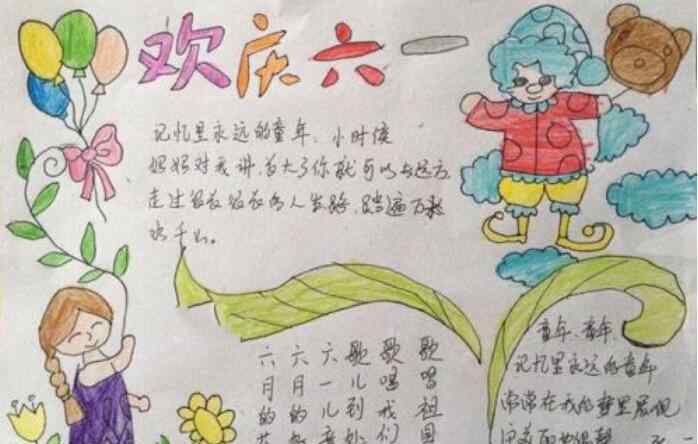 欢庆六一
记忆里永远的童年、小时候
妈妈对我讲,长大了你就可以去远方,
走过很长很长的人生路,踏遍万
水千山。
歌唱祖国
歌唱我们
歌儿到处
六一儿童
六月的
六月的花
童年、童年、
记忆里永远的童年
常常在我的梦里展现